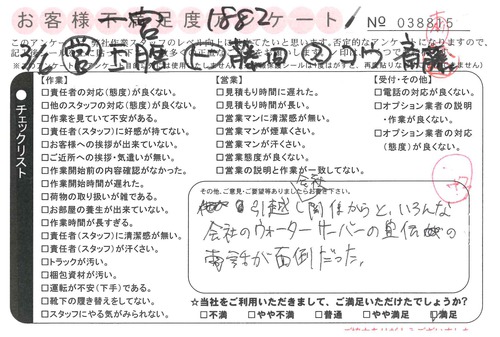 お客様不満足度アンケート
No 038815
1882
【作業】
□責任者の対応(態度)が良くない。
□他のスタッフの対応(態度)が良くない。
□作業を見ていて不安がある。
□責任者(スタッフ)に好感が持てない。
□お客様への挨拶が出来ていない。
□ご近所への挨拶・気遣いが無い。
□作業開始前の内容確認がなかった。
□作業開始時間が遅れた。
□荷物の取り扱いが雑である。
□お部屋の養生が出来ていない。
□作業時間が長すぎる。
□責任者(スタッフ)に清潔感が無い。
□責任者(スタッフ)が汗くさい。
□トラックが汚い。
□梱包資材が汚い。
□運転が不安(下手)である。
□靴下の履き替えをしてない。
□スタッフにやる気がみられない。
【営業】
□見積もり時間に遅れた。
□見積もり時間が長い。
□営業マンに清潔感が無い。
□営業マンが煙草くさい。
□営業マンが汗くさい。
□営業態度が良くない。
□営業の説明と作業が一致してない。
【受付・その他】
□電話の対応が良くない。
□オプション業者の説明
・作業が良くない。
□オプション業者の対応
(態度)が良くない。
●チェックリスト
その他、ご意見・ご要望等ありましたらお書き下さい。
引越し関係からと、いろんな
会社のウォーターサーバーの宣伝の
電話が面倒だった。
☆当社をご利用いただきまして、ご満足いただけたでしょうか?
□不満 □やや不満 □普通 □やや満足 □満足